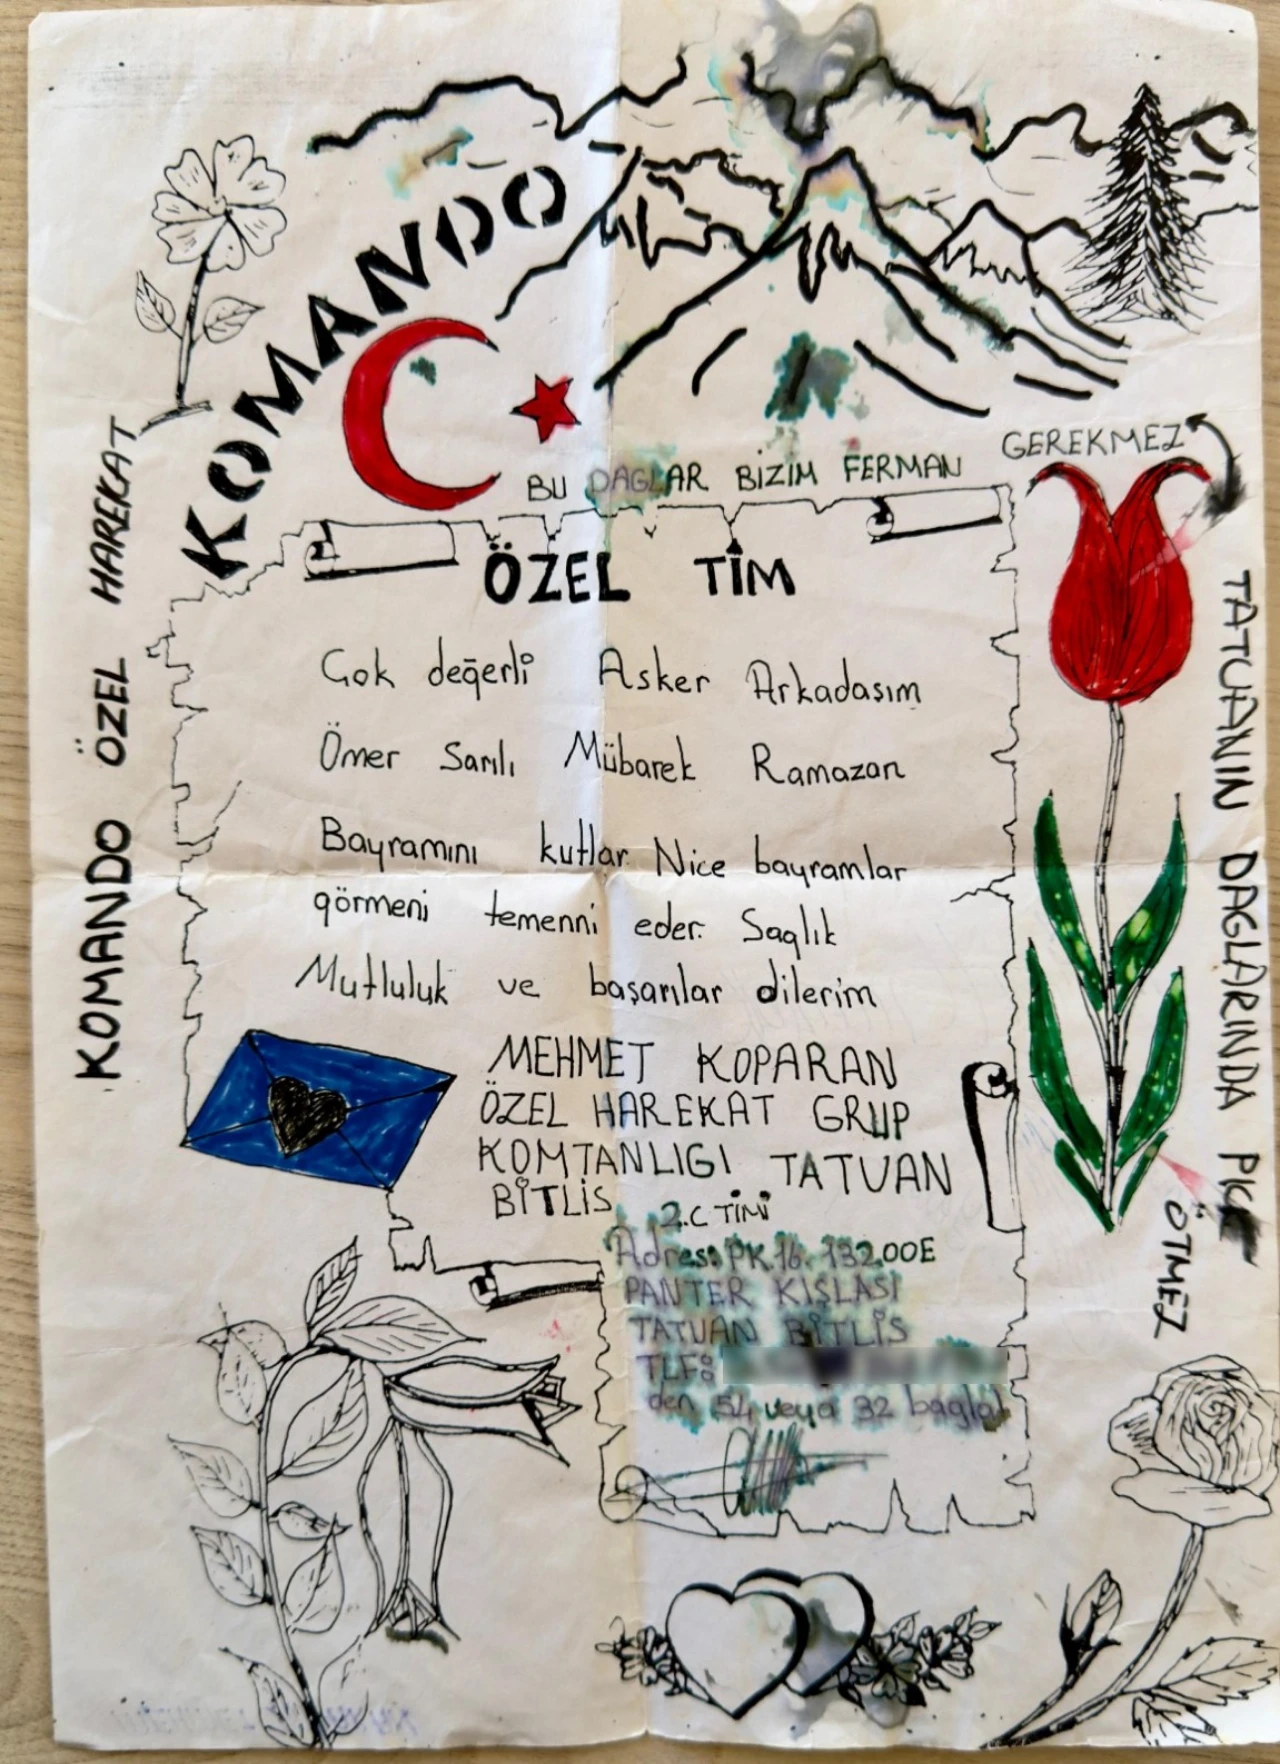 KOMANDO
BU DAGLAR BİZİM FERMAN GEREKMEZ
KOMANDO ÖZEL HAREKAT
ÖZEL TİM
Çok değerli Asker Arkadaşım
Ömer Sarılı Mübarek Ramazan
Bayramını kutlar. Nice bayramlar
görmeni temenni eder. Saglık
Mutluluk ve başarılar dilerim
MEHMET KOPARAN
ÖZEL HAREKAT GRUP
KOMTANLIGI TATUAN
BİTLİS
2.C TİMİ
Adres: PK.16. 132.00E
PANTER KIŞLASI
TATUAN BİTLİS
TLF:
den 54 veya 32 baglat
TATUANIN DAGLARINDA
ÖTMEZ